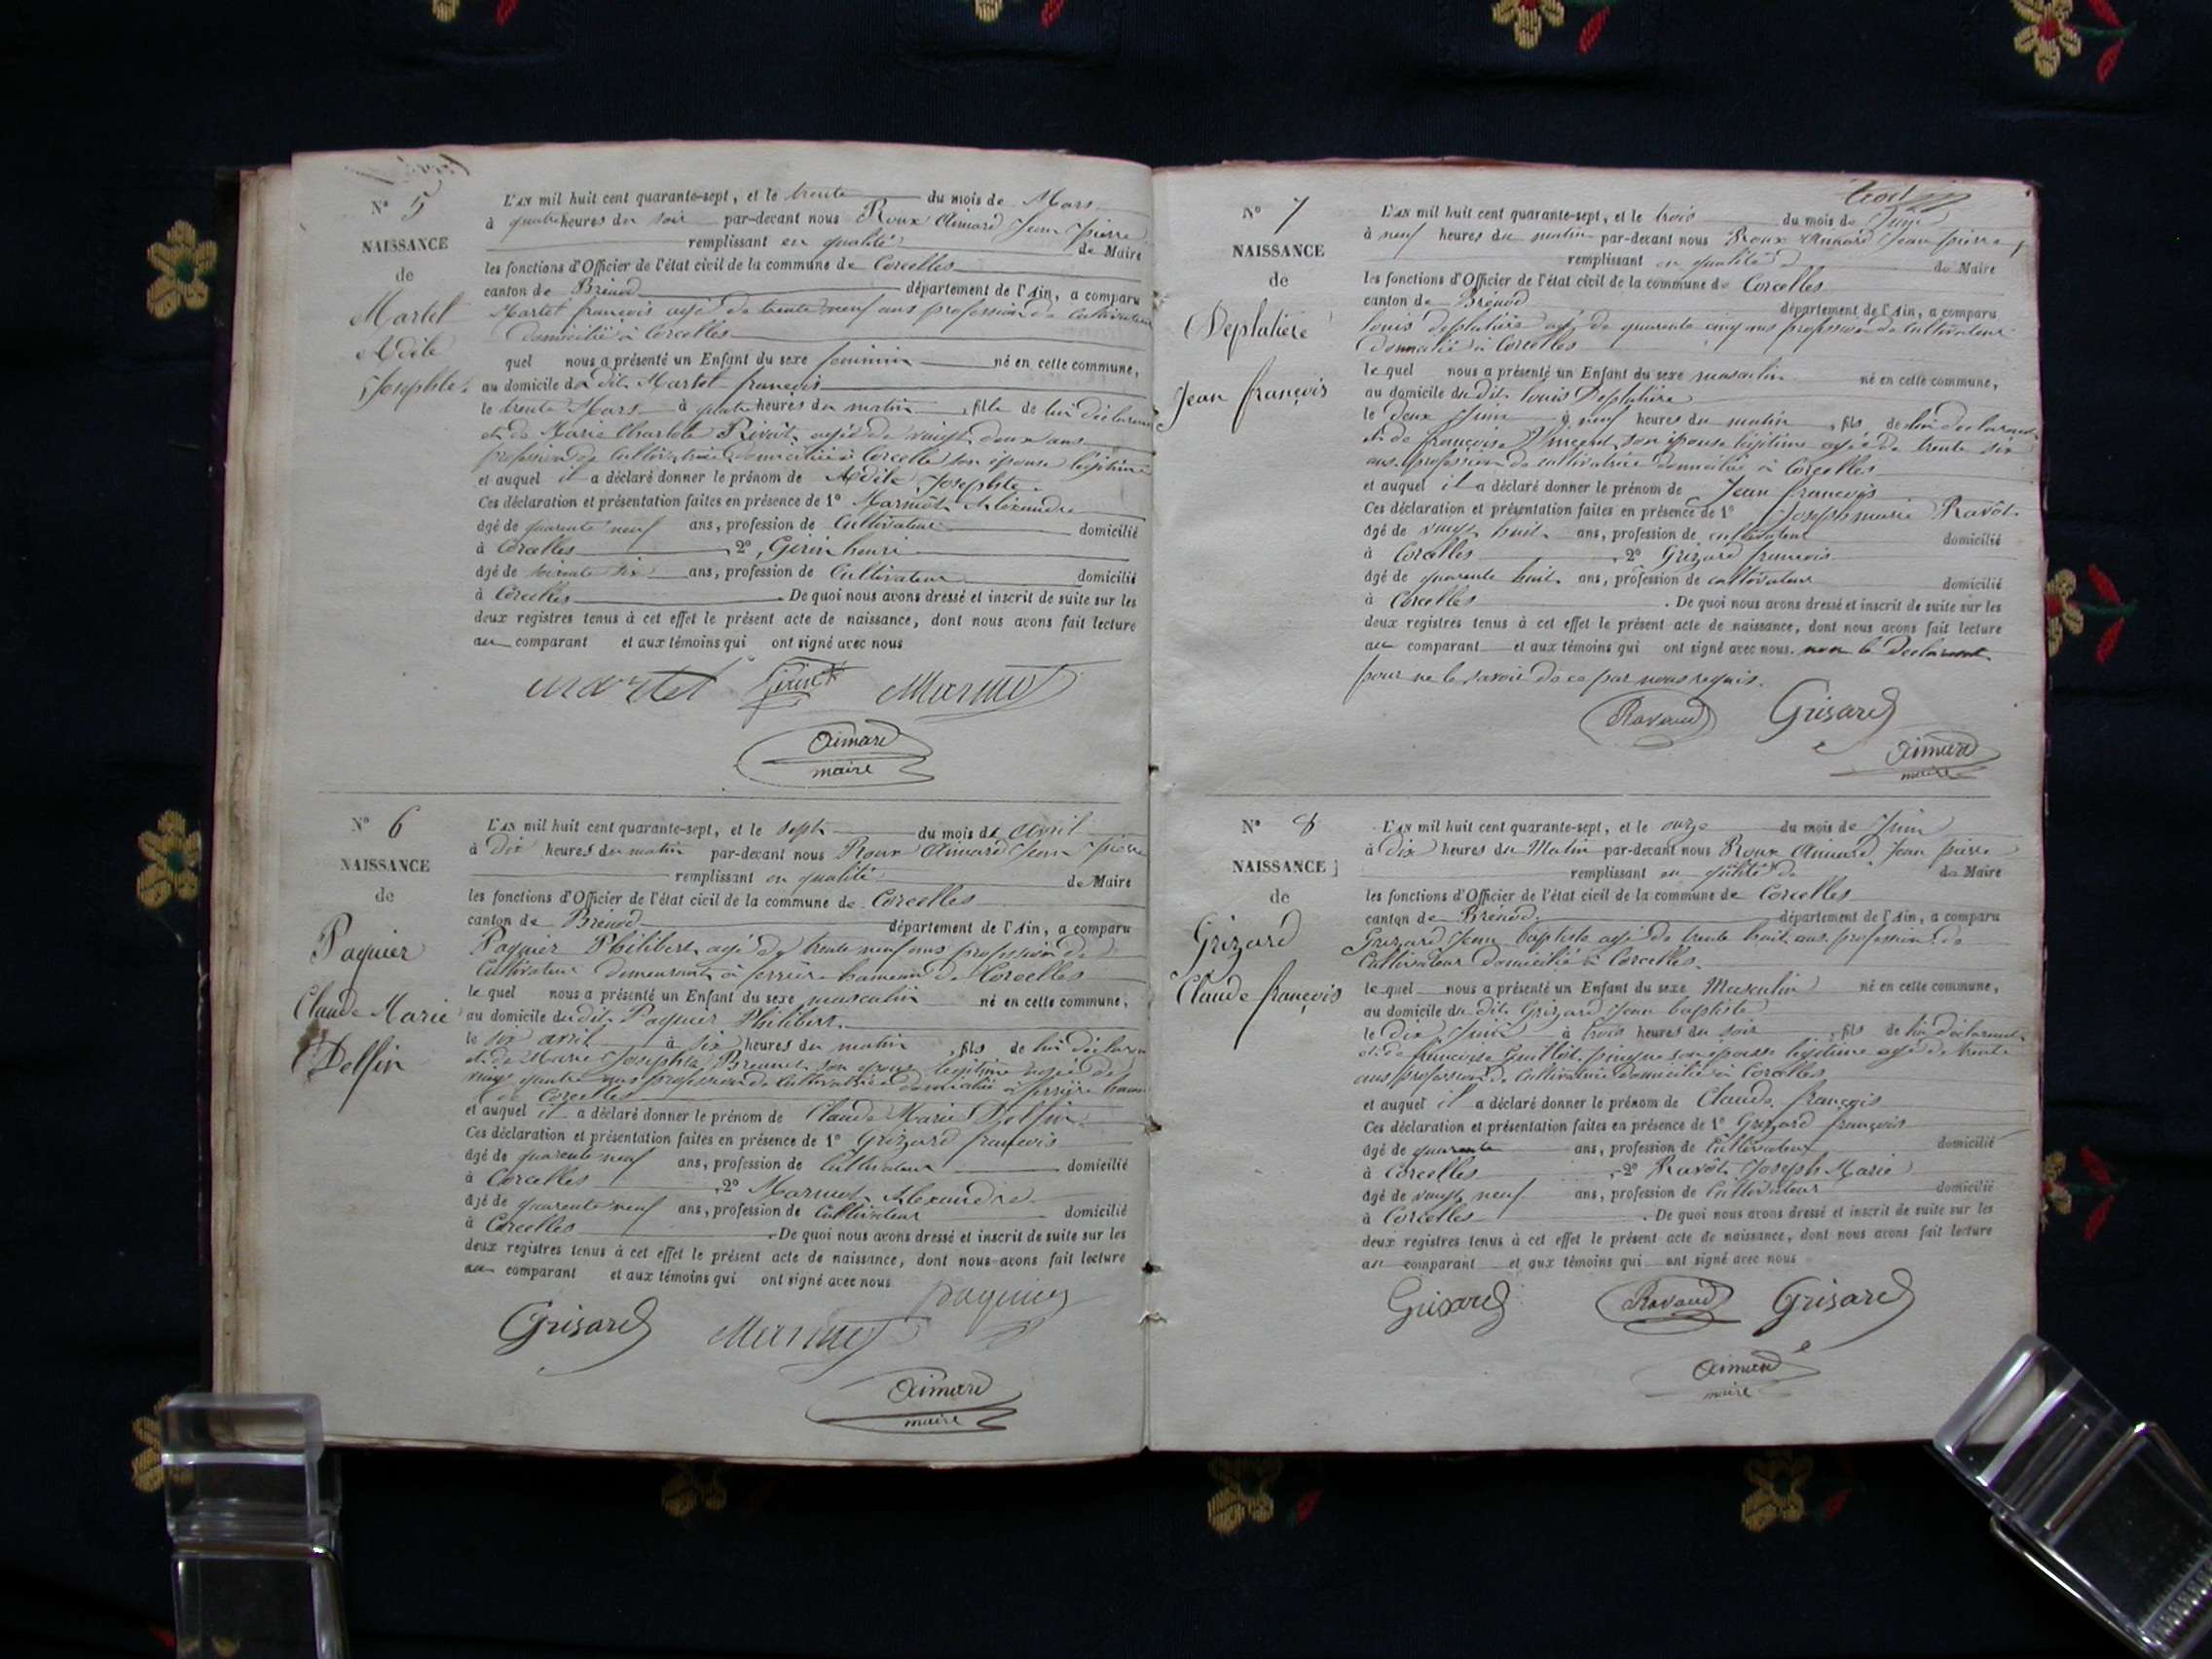 N° 5
NAISSANCE
de
Martel
Adèle
Josephte
L'AN mil huit cent quarante-sept, et le trente du mois de Mars
à quatre heures du soir par-devant nous Roux Aimard Jean pierre
remplissant en qualité de Maire
les fonctions d'Officier de l'état civil de la commune de Corcelles
canton de Brénod département de l'Ain, a comparu
Martel françois agé de trente neuf ans profession de Cultivateur
domicilié à Corcelles
quel nous a présenté un Enfant du sexe feminin né en cette commune,
au domicile du dit Martel françois
le trente Mars à quatre heures du matin, fille de lui déclarant
et de Marie Charlotte agée de vingt deux ans
profession de Cultivatrice domiciliée à Corcelle son épouse légitime
et auquel il a déclaré donner le prénom de Adèle Josephte
Ces déclaration et présentation faites en présence de 1° Marmot Alexandre
âgé de quarente neuf ans, profession de Cultivateur domicilié
à Corcelles, 2° henri
âgé de soixante six ans, profession de Cultivateur domicilié
à Corcelles. De quoi nous avons dressé et inscrit de suite sur les
deux registres tenus à cet effet le présent acte de naissance, dont nous avons fait lecture
au comparant et aux témoins qui ont signé avec nous
martel Marmot
Aimard
maire
N° 6
NAISSANCE
de
Paquier
Claude Marie
Delfin
L'AN mil huit cent quarante-sept, et le sept du mois de avril
à dix heures du matin par-devant nous Roux Aimard Jean pierre
remplissant en qualité de Maire
les fonctions d'Officier de l'état civil de la commune de Corcelles
canton de Brénod département de l'Ain, a comparu
Paquier Philibert agé de trente neuf ans profession de
Cultivateur demeurant à ferrière hameau de Corcelles
le quel nous a présenté un Enfant du sexe masculin né en cette commune,
au domicile du dit Paquier Philibert
le six avril à six heures du matin, fils de lui déclarant
et de Marie Josephte son épouse légitime agée de
vingt quatre ans profession de Cultivatrice domiciliée à ferrière hameau
de Corcelles
et auquel il a déclaré donner le prénom de Claude Marie Delfin
Ces déclaration et présentation faites en présence de 1° Grizard françois
âgé de quarente neuf ans, profession de Cultivateur domicilié
à Corcelles, 2° Marmot Alexandre
âgé de quarente neuf ans, profession de Cultivateur domicilié
à Corcelles. De quoi nous avons dressé et inscrit de suite sur les
deux registres tenus à cet effet le présent acte de naissance, dont nous avons fait lecture
au comparant et aux témoins qui ont signé avec nous
paquier
Grisard Marmot
Aimard
maire
N° 7
NAISSANCE
de
Deplatière
Jean françois
L'AN mil huit cent quarante-sept, et le trois du mois de Juin
à neuf heures du matin par-devant nous Roux Aimard Jean pierre
remplissant en qualité de Maire
les fonctions d'Officier de l'état civil de la commune de Corcelles
canton de Brénod département de l'Ain, a comparu
louis deplatière agé de quarente cinq ans profession de Cultivateur
domicilié à Corcelles
le quel nous a présenté un Enfant du sexe masculin né en cette commune,
au domicile du dit louis Deplatière
le deux Juin à neuf heures du matin, fils de lui déclarant
et de françoise Vincent son épouse légitime agée de trente six
ans profession de cultivatrice domiciliée à Corcelles
et auquel il a déclaré donner le prénom de Jean françois
Ces déclaration et présentation faites en présence de 1° Joseph marie Ravôt
âgé de vingt huit ans, profession de cultivateur domicilié
à Corcelles, 2° Grizard francois
âgé de quarente huit ans, profession de cultivateur domicilié
à Corcelles. De quoi nous avons dressé et inscrit de suite sur les
deux registres tenus à cet effet le présent acte de naissance, dont nous avons fait lecture
au comparant et aux témoins qui ont signé avec nous. non le Declarant
pour ne le savoir de ce par nous requis.
Ravaud Grisard
Aimard
maire
N° 8
NAISSANCE
de
Grizard
Claude françois
L'AN mil huit cent quarante-sept, et le onze du mois de Juin
à dix heures du Matin par-devant nous Roux Aimard Jean pierre
remplissant en qualité de de Maire
les fonctions d'Officier de l'état civil de la commune de Corcelles
canton de Brénod département de l'Ain, a comparu
Grizard Jean baptiste agé de trente huit ans profession de
Cultivateur domicilié à Corcelles.
le quel nous a présenté un Enfant du sexe Masculin né en cette commune,
au domicile du dit Grizard Jean baptiste
le dix Juin à trois heures du soir, fils de lui déclarant
et de françoise Guillot son épouse légitime agé de trente
ans profession de Cultivatrice domicilié à Corcelles
et auquel il a déclaré donner le prénom de Claude françois
Ces déclaration et présentation faites en présence de 1° Grizard françois
âgé de quarante ans, profession de Cultivateur domicilié
à Corcelles, 2° Ravôt Joseph Marie
âgé de vingt neuf ans, profession de Cultivateur domicilié
à Corcelles. De quoi nous avons dressé et inscrit de suite sur les
deux registres tenus à cet effet le présent acte de naissance, dont nous avons fait lecture
au comparant et aux témoins qui ont signé avec nous
Grisard Ravaud Grisard
Aimard
maire